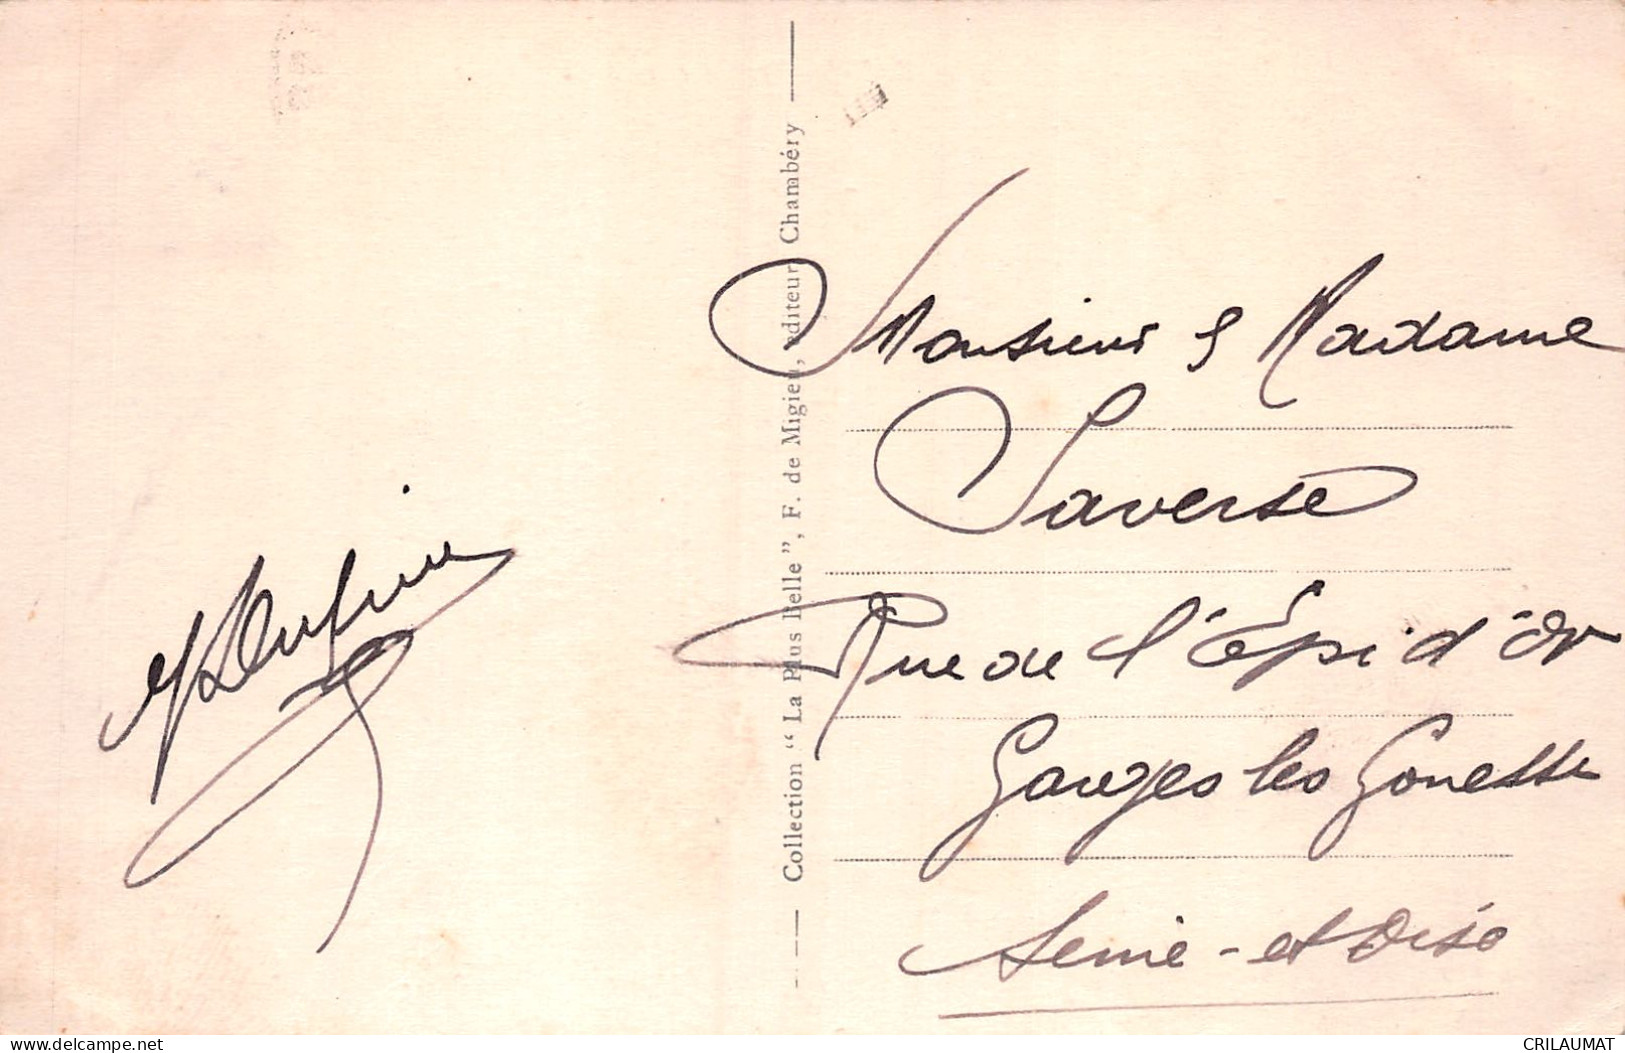 Monsieur & Madame
Saverse
Rue de l'Épi d'or
Garges les Gonesse
Seine-et-Oise
Collection “ La Plus Belle ”, F. de Migieu, éditeur, Chambéry
delcampe.net
CRILAUMAT